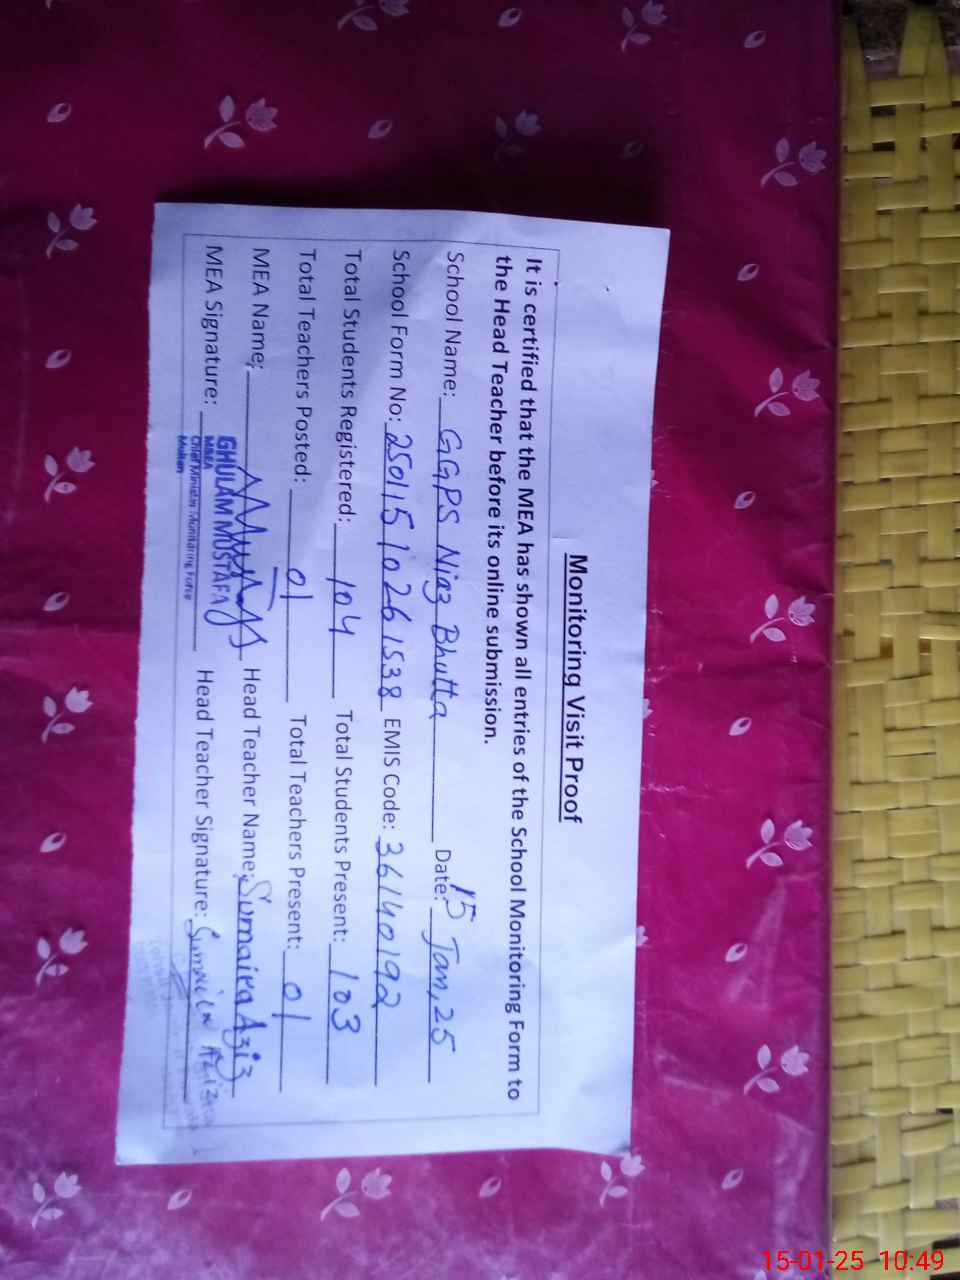 Monitoring Visit Proof
It is certified that the MEA has shown all entries of the School Monitoring Form to
the Head Teacher before its online submission.
School Name: GGPS Niaz Bhutta Date: 15 Jan, 25
School Form No: 25011510261538 EMIS Code: 36140192
Total Students Registered: 104 Total Students Present: 103
Total Teachers Posted: 01 Total Teachers Present: 01
MEA Name: Head Teacher Name: Sumaira Aziz
MEA Signature: GHULAM MUSTAFA Head Teacher Signature: Sumaira Aziz
M&EA
Chief Minister Monitoring Force
Multan
15-01-25 10:49